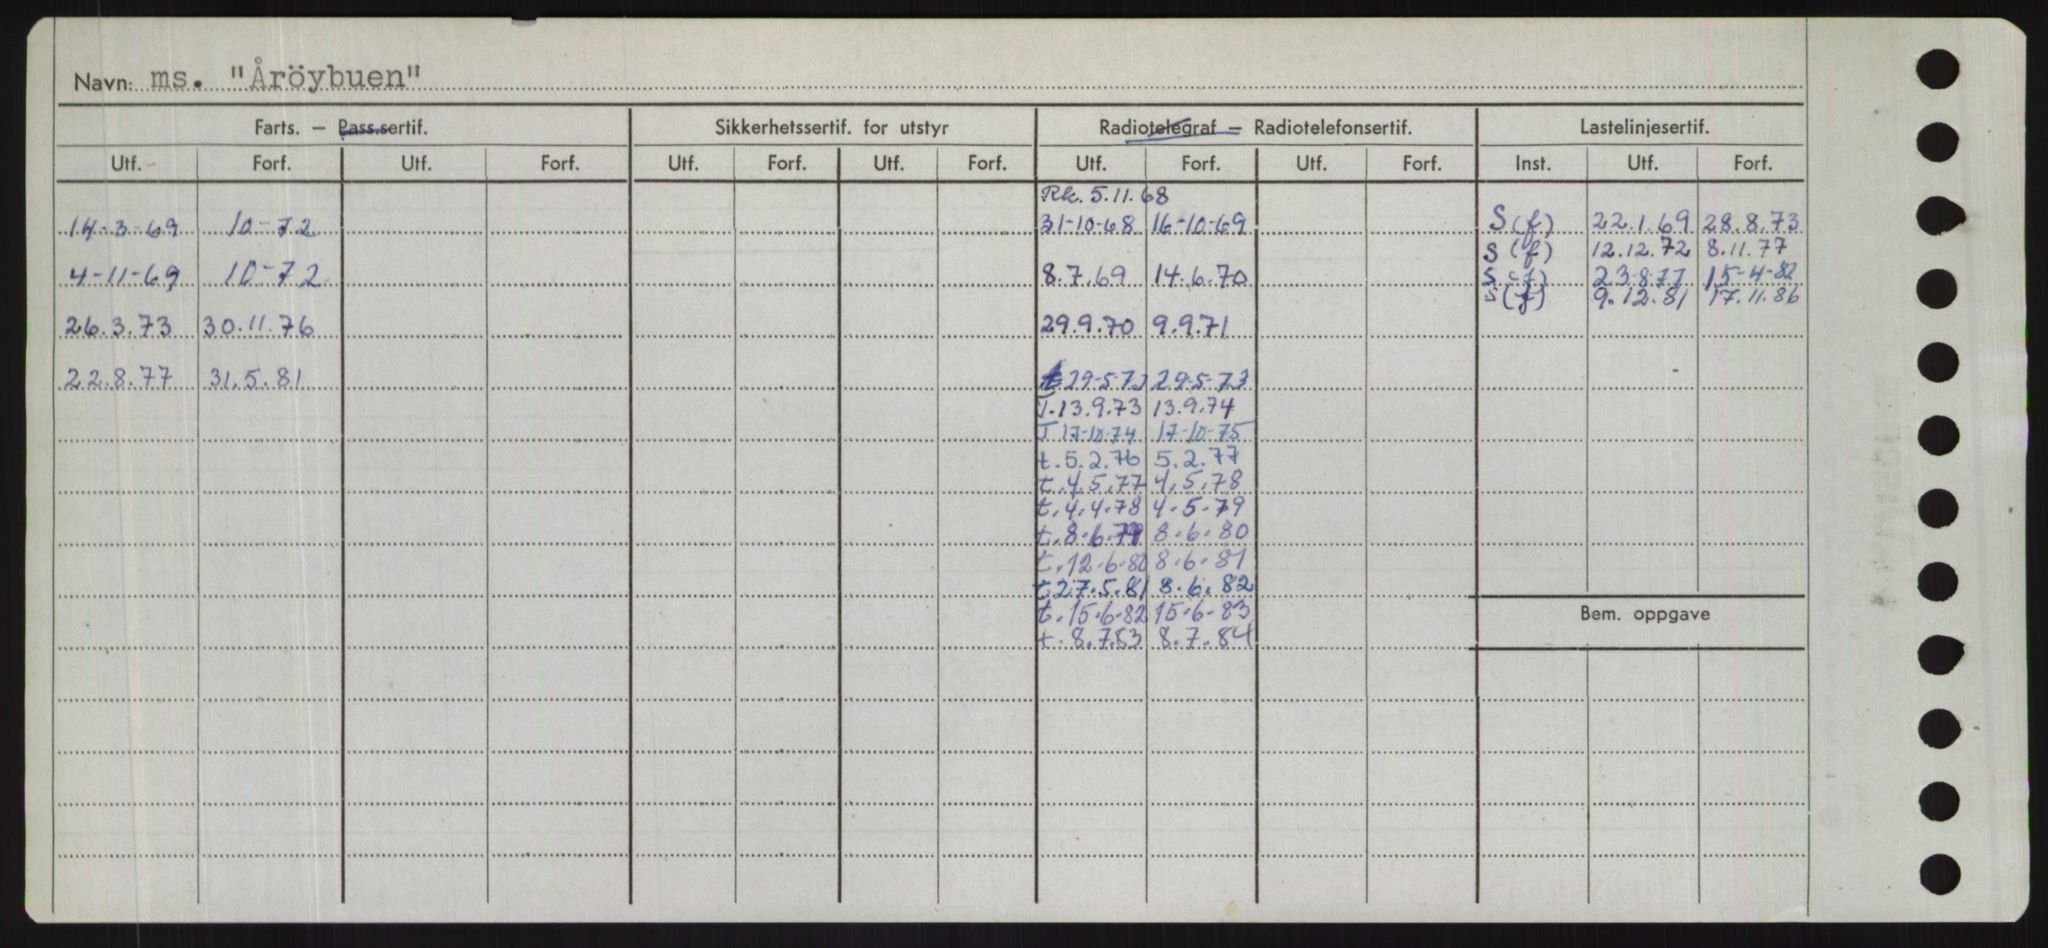 Navn: ms. "Åröybuen"
Farts. — Pass.sertif. Sikkerhetssertif. for utstyr Radiotelegraf — Radiotelefonsertif. Lastelinjesertif.
Utf. Forf. Utf. Forf. Utf. Forf. Utf. Forf. Utf. Forf. Utf. Forf. Inst. Utf. Forf.
Rk. 5.11.68
14-3-69 10-72 31-10-68 16-10-69 S(f) 22.1.69 28.8.73
S(f) 12.12.72 8.11.77
4-11-69 10-72 8.7.69 14.6.70 S(f) 23-8-77 15-4-82
S(f) 9.12.81 17.11.86
26.3.73 30.11.76 29.9.70 9.9.71
22.8.77 31.5.81 29-5-73
T.13.9.73 13.9.74
T 17-10-74 17-10-75
t.5.2.76 5.2.77
t.4.5.77 4.5.78
t.4.4.78 4-5-79
t.8-6.79 8-6-80
t.12-6-80 8-6-81
t.27.5.81 8.6.82
t.15-6-82 15-6-83
Bem. oppgave
t.8.7.83 8.7.84